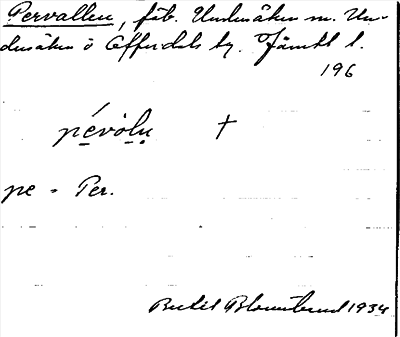 Pervallen, fäb. Undersåker m. Un-
dersåker o Offerdals tg. Jämtl l.
196
pévölu †
pe = Per.
Bertil Blomstrand 1934